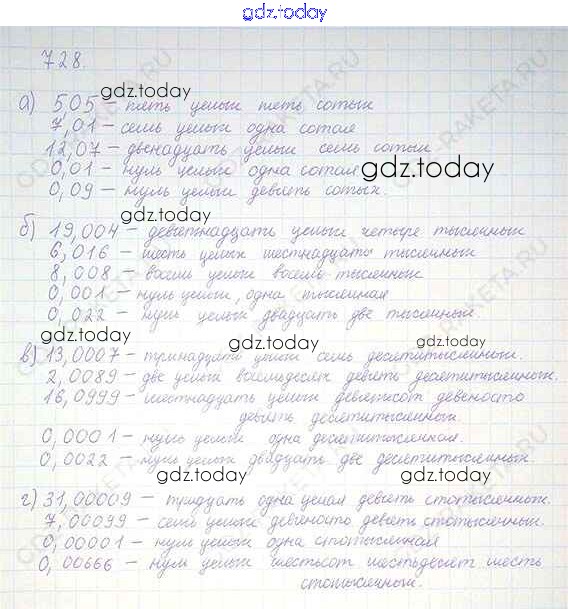 gdz.today
728.
gdz.today
а) 5,05 – пять целых пять сотых
7,01 – семь целых одна сотая
12,07 – двенадцать целых семь сотых
0,01 – нуль целых одна сотая
gdz.today
0,09 – нуль целых девять сотых.
gdz.today
б) 19,004 – девятнадцать целых четыре тысячных
6,016 – шесть целых шестнадцать тысячных
8,008 – восемь целых восемь тысячных
0,001 – нуль целых, одна тысячная
0,022 – нуль целых двадцать две тысячных.
gdz.today gdz.today gdz.today
в) 13,0007 – тринадцать целых семь десятитысячных.
2,0089 – две целых восемьдесят девять десятитысячных.
16,0999 – шестнадцать целых девятьсот девяносто
девять десятитысячных.
0,0001 – нуль целых одна десятитысячная.
0,0022 – нуль целых двадцать две десятитысячных.
gdz.today gdz.today
г) 31,00009 – тридцать одна целая девять стотысячных.
7,00099 – семь целых девяносто девять стотысячных.
0,00001 – нуль целых одна стотысячная
0,00666 – нуль целых шестьсот шестьдесят шесть
стотысячных.